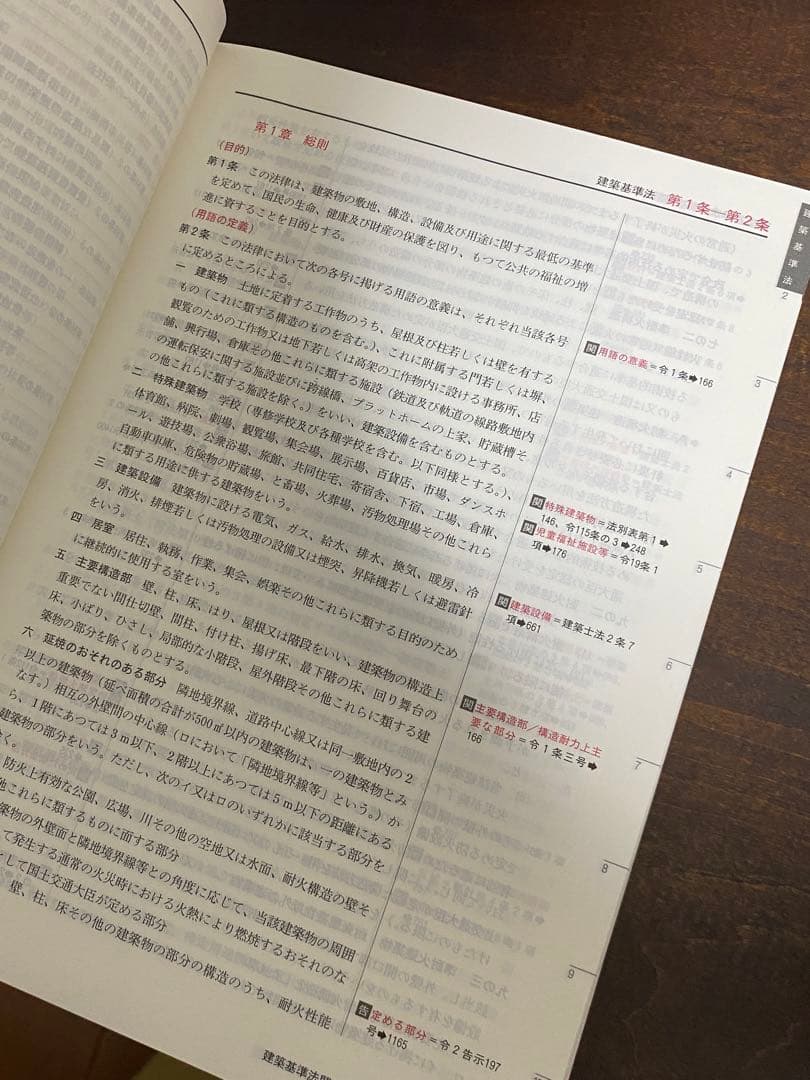 建築基準法 第1条―第2条
第1章 総則
（目的）
第1条 この法律は、建築物の敷地、構造、設備及び用途に関する最低の基準
を定めて、国民の生命、健康及び財産の保護を図り、もつて公共の福祉の増
進に資することを目的とする。
（用語の定義）
第2条 この法律において次の各号に掲げる用語の意義は、それぞれ当該各号
に定めるところによる。
一 建築物 土地に定着する工作物のうち、屋根及び柱若しくは壁を有する
もの（これに類する構造のものを含む。）、これに附属する門若しくは塀、
観覧のための工作物又は地下若しくは高架の工作物内に設ける事務所、店
舗、興行場、倉庫その他これらに類する施設（鉄道及び軌道の線路敷地内
の運転保安に関する施設並びに跨線橋、プラットホームの上家、貯蔵槽そ
の他これらに類する施設を除く。）をいい、建築設備を含むものとする。
二 特殊建築物 学校（専修学校及び各種学校を含む。以下同様とする。）、
体育館、病院、劇場、観覧場、集会場、展示場、百貨店、市場、ダンスホ
ール、遊技場、公衆浴場、旅館、共同住宅、寄宿舎、下宿、工場、倉庫、
自動車車庫、危険物の貯蔵場、と畜場、火葬場、汚物処理場その他これら
に類する用途に供する建築物をいう。
三 建築設備 建築物に設ける電気、ガス、給水、排水、換気、暖房、冷
房、消火、排煙若しくは汚物処理の設備又は煙突、昇降機若しくは避雷針
をいう。
四 居室 居住、執務、作業、集会、娯楽その他これらに類する目的のため
に継続的に使用する室をいう。
五 主要構造部 壁、柱、床、はり、屋根又は階段をいい、建築物の構造上
重要でない間仕切壁、間柱、付け柱、揚げ床、最下階の床、回り舞台の
床、小ばり、ひさし、局部的な小階段、屋外階段その他これらに類する建
築物の部分を除くものとする。
六 延焼のおそれのある部分 隣地境界線、道路中心線又は同一敷地内の2
以上の建築物（延べ面積の合計が500㎡以内の建築物は、一の建築物とみ
なす。）相互の外壁間の中心線（ロにおいて「隣地境界線等」という。）か
ら、1階にあつては3m以下、2階以上にあつては5m以下の距離にある
建築物の部分をいう。ただし、次のイ又はロのいずれかに該当する部分を
く。
防火上有効な公園、広場、川その他の空地又は水面、耐火構造の壁そ
他これらに類するものに面する部分
築物の外壁面と隣地境界線等との角度に応じて、当該建築物の周囲
て発生する通常の火災時における火熱により燃焼するおそれのな
として国土交通大臣が定める部分
壁、柱、床その他の建築物の部分の構造のうち、耐火性能
関用語の意義＝令1条➡166
関特殊建築物＝法別表第1➡
146、令115条の3➡248
関児童福祉施設等＝令19条1
項➡176
関建築設備＝建築士法2条7
項➡661
関主要構造部／構造耐力上主
要な部分＝令1条三号➡
166
告定める部分＝令2告示197
号➡1165
建築基準法
2
3
4
5
6
7
8
9
建築基準法